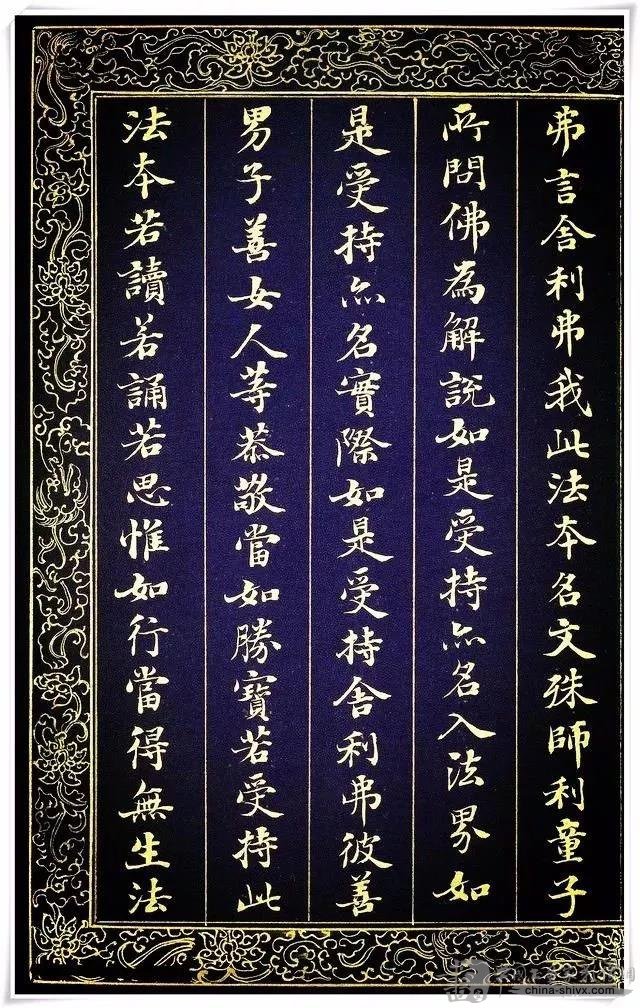 弗言舍利弗我此法本名文殊師利童子
所問佛為解說如是受持亦名入法界如
是受持亦名實際如是受持舍利弗彼善
男子善女人等恭敬當如勝寶若受持此
法本若讀若誦若思惟如行當得無生法
china-shivx.com